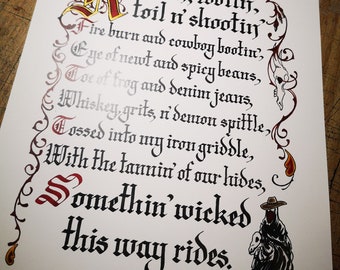 toil n' shootin'
Fire burn and cowboy bootin',
Eye of newt and spicy beans,
Toe of frog and denim jeans,
Whiskey, grits, n' demon spittle,
Tossed into my iron griddle,
With the tannin' of our hides,
Somethin' wicked
this way rides.